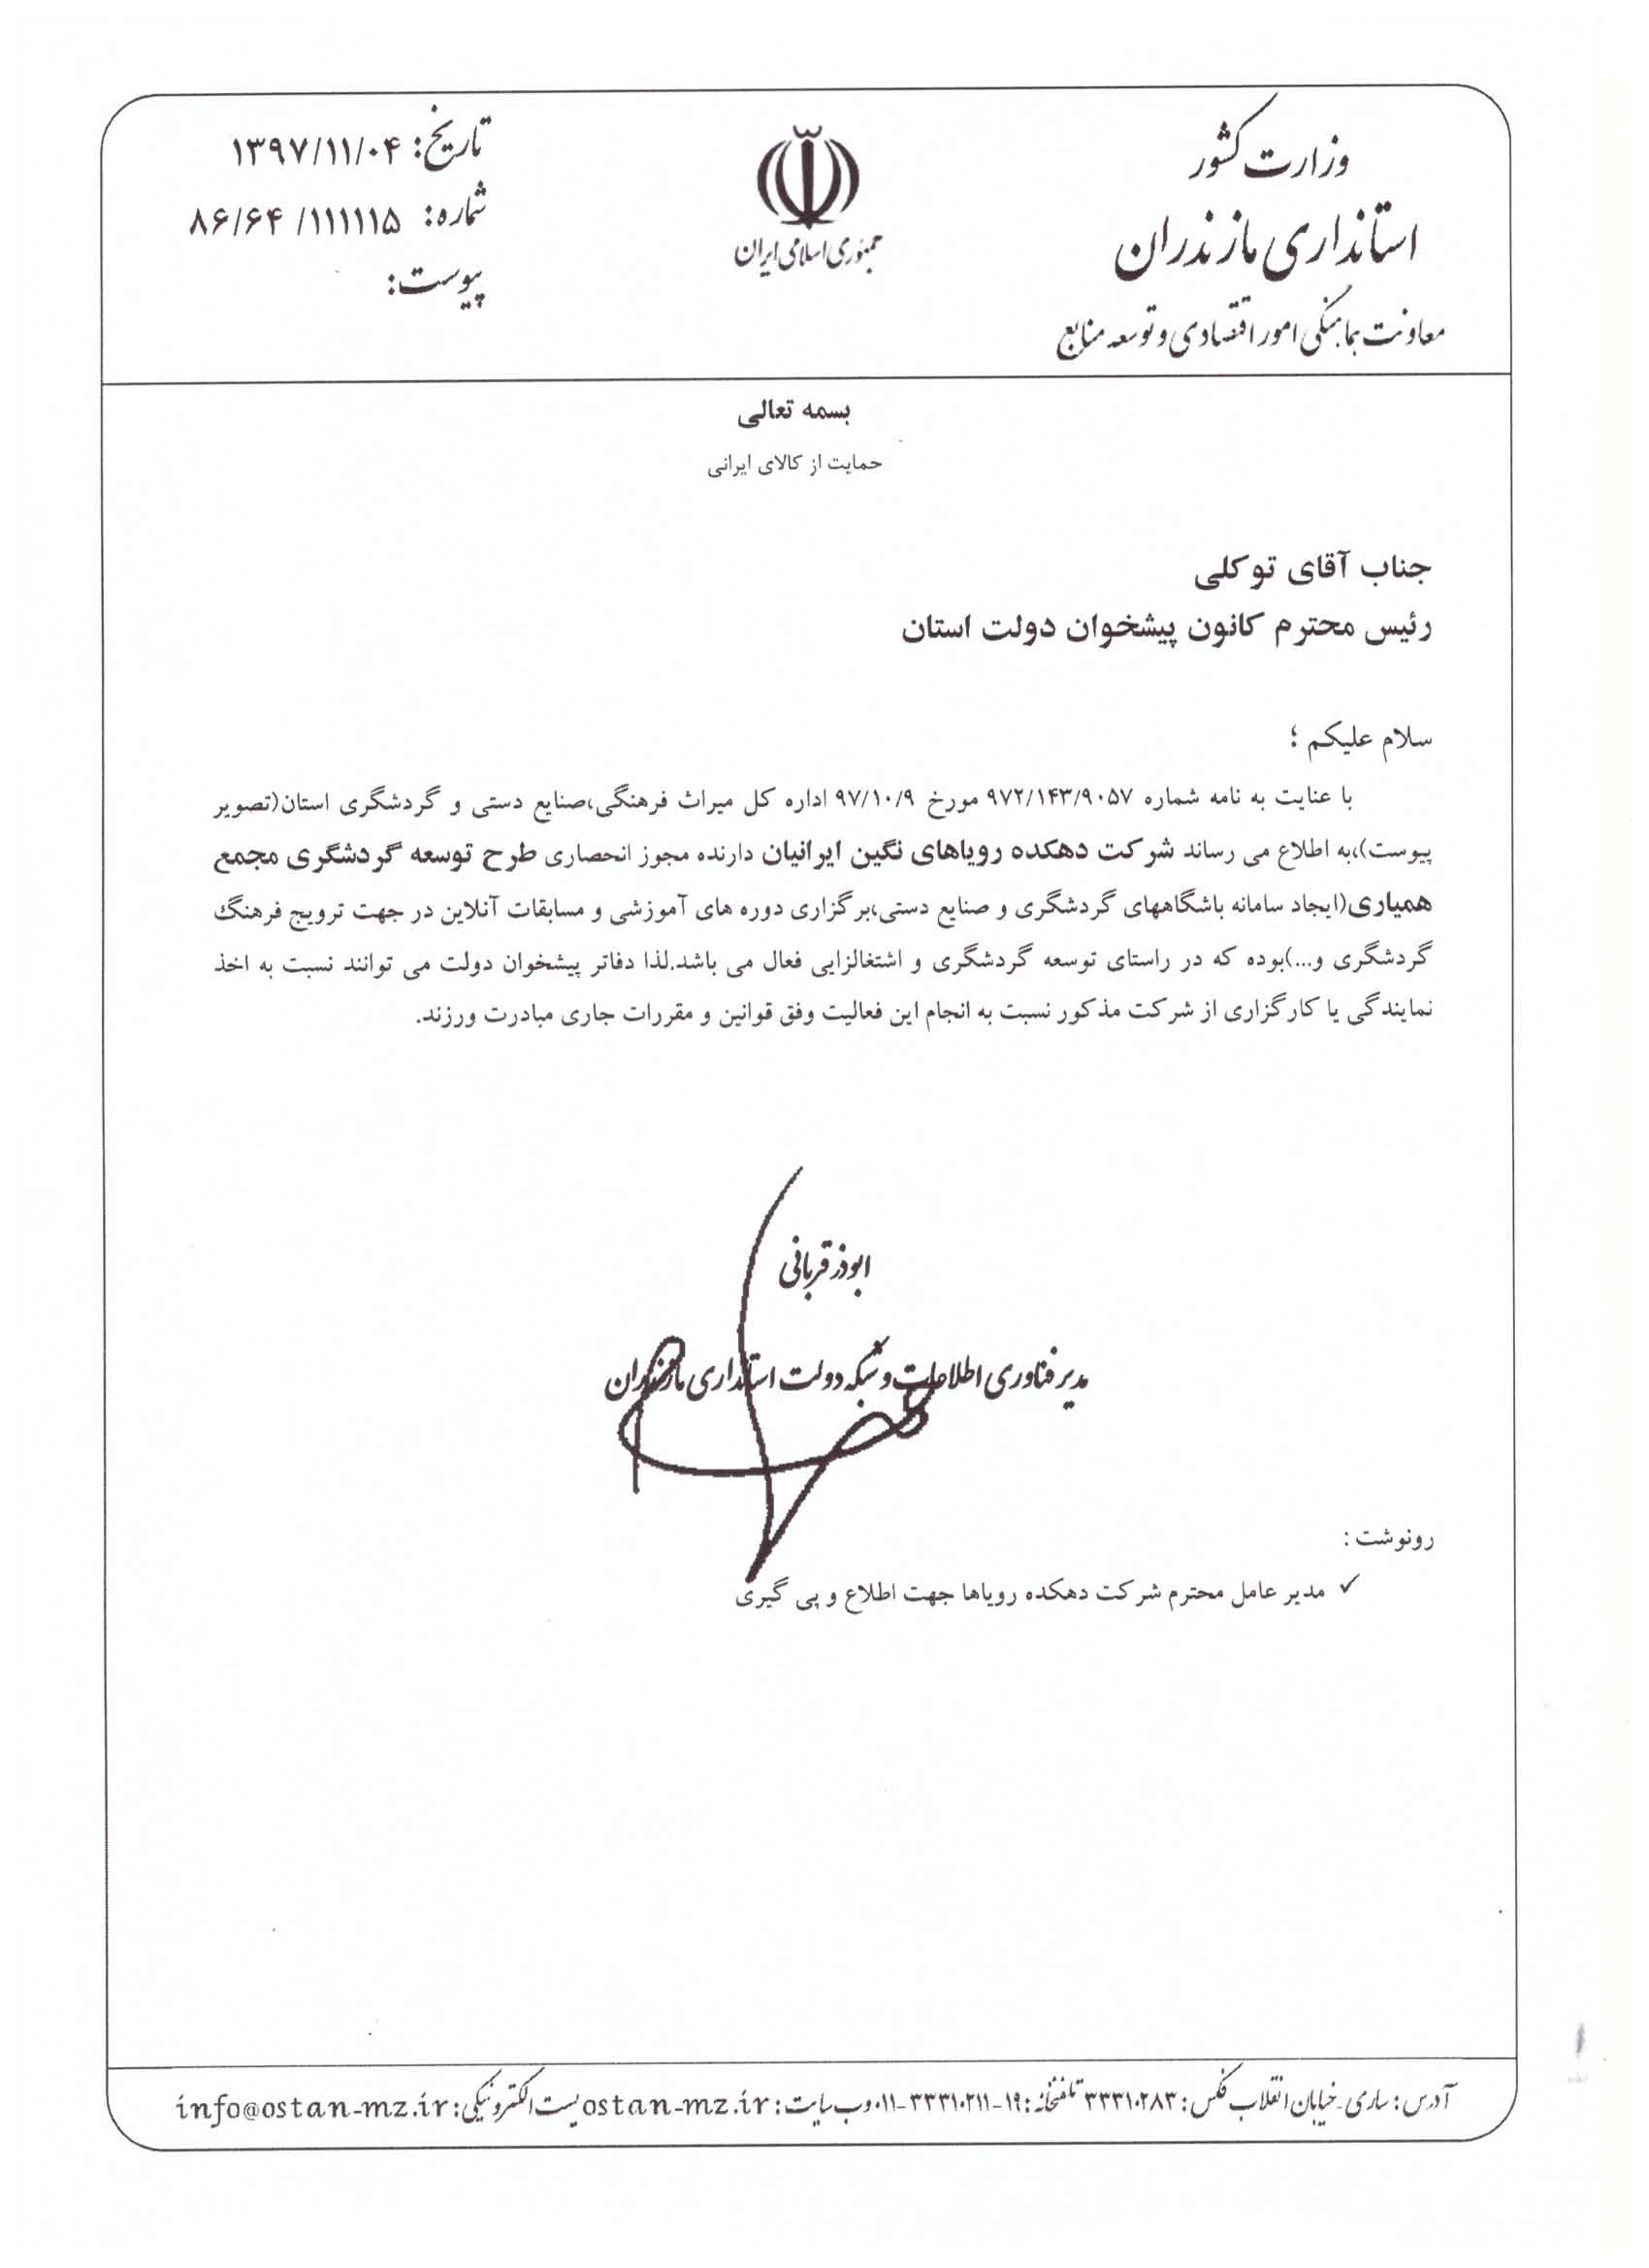 وزارت کشور
استانداری مازندران
معاونت هماهنگی امور اقتصادی و توسعه منابع
جمهوری اسلامی ایران
تاریخ: ۱۳۹۷/۱۱/۰۴
شماره: ۸۶/۶۴ /۱۱۱۱۱۵
پیوست:
بسمه تعالی
حمایت از کالای ایرانی
جناب آقای توکلی
رئیس محترم کانون پیشخوان دولت استان
سلام علیکم ؛
با عنایت به نامه شماره ۹۷۲/۱۴۳/۹۰۵۷ مورخ ۹۷/۱۰/۹ اداره کل میراث فرهنگی،صنایع دستی و گردشگری استان(تصویر
پیوست)،به اطلاع می رساند شرکت دهکده رویاهای نگین ایرانیان دارنده مجوز انحصاری طرح توسعه گردشگری مجمع
همیاری(ایجاد سامانه باشگاههای گردشگری و صنایع دستی،برگزاری دوره های آموزشی و مسابقات آنلاین در جهت ترویج فرهنگ
گردشگری و...)بوده که در راستای توسعه گردشگری و اشتغالزایی فعال می باشد.لذا دفاتر پیشخوان دولت می توانند نسبت به اخذ
نمایندگی یا کارگزاری از شرکت مذکور نسبت به انجام این فعالیت وفق قوانین و مقررات جاری مبادرت ورزند.
ابوذر قربانی
مدیر فناوری اطلاعات و شبکه دولت استانداری مازندران
رونوشت :
✓ مدیر عامل محترم شرکت دهکده رویاها جهت اطلاع و پی گیری
آدرس: ساری-خیابان انقلاب فکس: ۳۳۳۱۰۲۸۳ تلفنخانه: ۱۹-۰۱۱-۳۳۳۱۰۲۱۱ وب سایت: ostan-mz.ir پست الکترونیکی: info@ostan-mz.ir